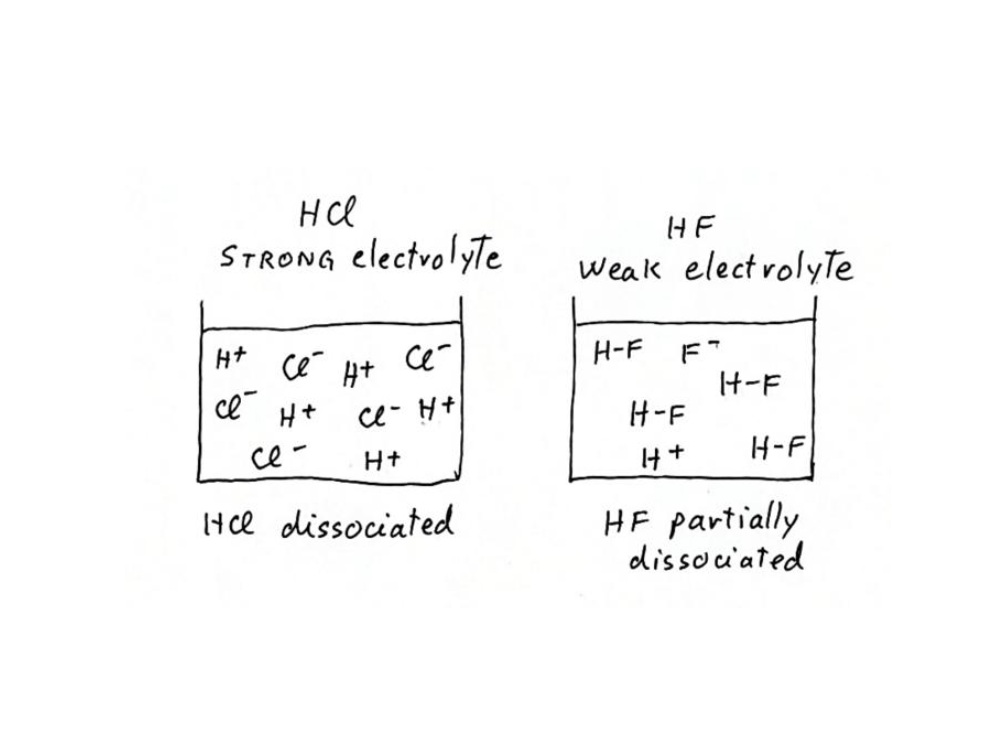 HCl
STRONG electrolyte
H+ Cl⁻ H+ Cl⁻
Cl⁻ H+ Cl⁻ H+
Cl⁻ H+
HCl dissociated
HF
Weak electrolyte
H-F F⁻
H-F
H-F
H+ H-F
HF partially
dissociated